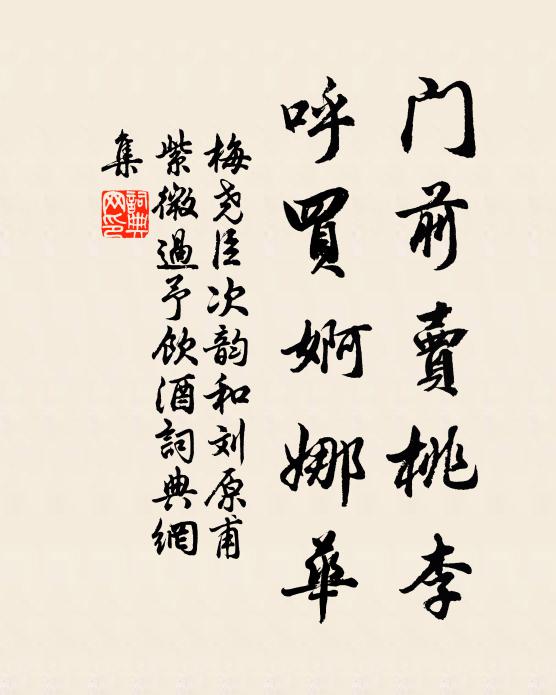 门前賣桃李
呼買婀娜華
梅尧臣次韵和刘原甫
紫微過予饮酒詞典網
集
詞典
网印